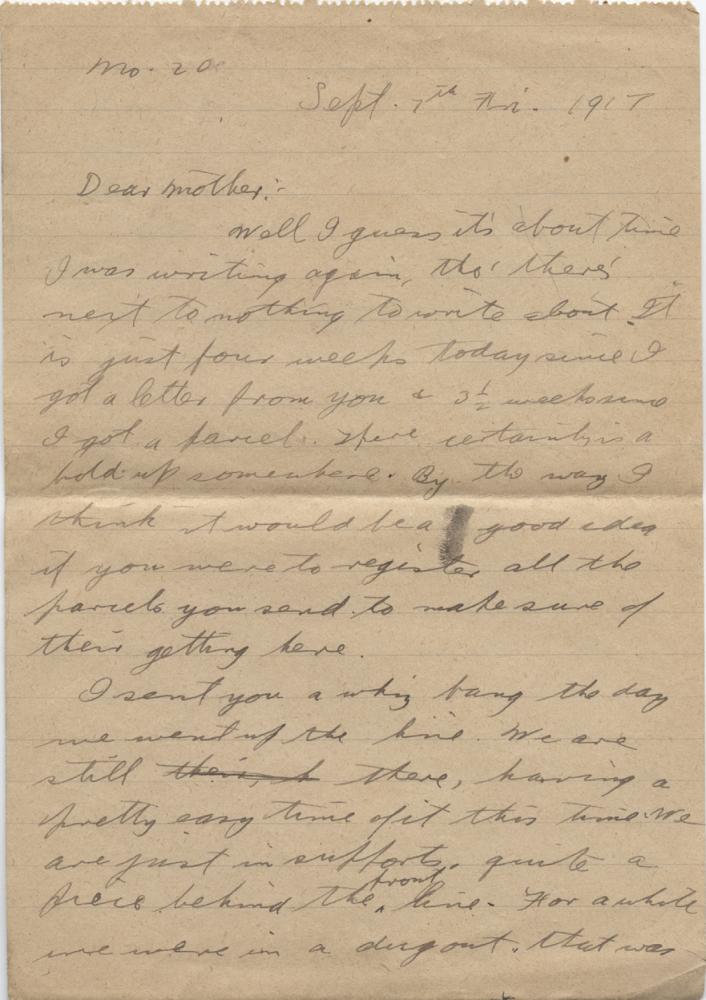 No. 20
Sept. 7th Fri. 1917
Dear Mother:-
Well I guess it's about time
I was writing again, tho' there's
next to nothing to write about. It
is just four weeks today since I
got a letter from you & 3½ weeks since
I got a parcel. There certainly is a
hold up somewhere. By the way I
think it would be a good idea
if you were to register all the
parcels you send to make sure of
their getting here.
I sent you a whiz bang the day
we went up the line. We are
still their, h there, having a
pretty easy time of it this time. We
are just in supports, quite a
piece behind the front line. For a while
we were in a dugout. That was